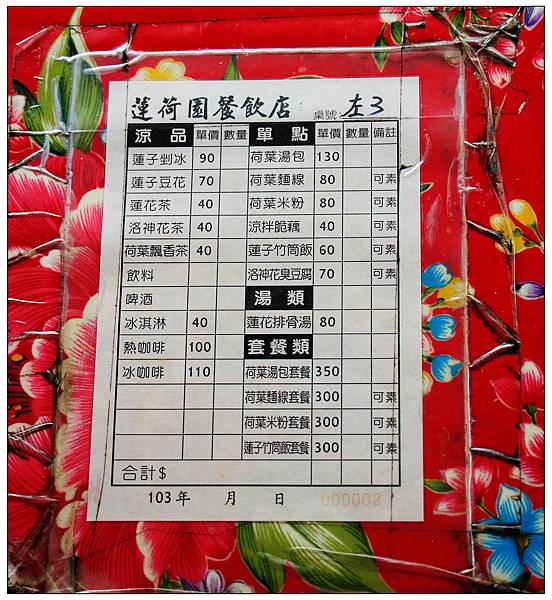 蓮荷園餐飲店 桌號:左3
涼品 單價 數量 單點 單價 數量 備註
蓮子剉冰 90 荷葉湯包 130
蓮子豆花 70 荷葉麵線 80 可素
蓮花茶 40 荷葉米粉 80 可素
洛神花茶 40 涼拌脆藕 40 可素
荷葉飄香茶 40 蓮子竹筒飯 60 可素
飲料 洛神花臭豆腐 70 可素
啤酒 湯類
冰淇淋 40 蓮花排骨湯 80
熱咖啡 100 套餐類
冰咖啡 110 荷葉湯包套餐 350
荷葉麵線套餐 300 可素
荷葉米粉套餐 300 可素
蓮子竹筒飯套餐 300 可素
合計$
103年 月 日 000002